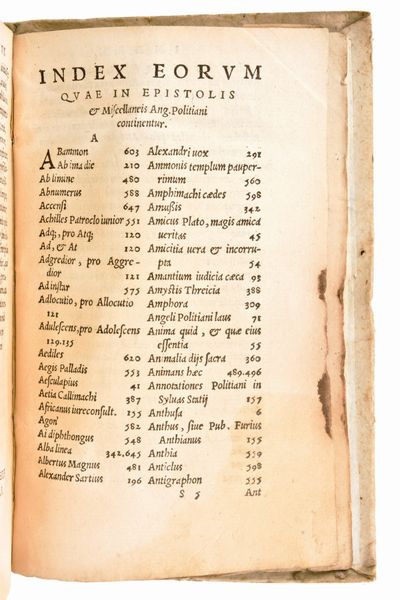 INDEX EORVM
QVAE IN EPISTOLIS
& Miscellaneis Ang. Politiani
continentur.
A
ABammon 603
Ab ima die 210
Ab limine 480
Abnumerus 588
Accensi 647
Achilles Patroclo iunior 551
Adq;, pro Atq; 120
Ad, & At 120
Adgredior, pro Aggre-
dior 121
Ad instar 575
Adlocutio, pro Allocutio
121
Adulescens, pro Adolescens
129.135
Aediles 620
Aegis Palladis 553
Aesculapius 41
Aetia Callimachi 387
Africanus iureconsult. 135
Agon 582
Ai diphthongus 548
Alba linea 342.645
Albertus Magnus 481
Alexander Sartius 196
Alexandri uox 291
Ammonis templum pauper-
rimum 560
Amphimachi cædes 598
Amussis 342
Amicus Plato, magis amica
ueritas 45
Amicitia uera & incorru-
pta 54
Amantium iudicia cæca 93
Amystis Threicia 388
Amphora 309
Angeli Politiani laus 71
Anima quid, & quæ eius
essentia 55
Animalia dijs sacra 360
Animans hæc 489.496
Annotationes Politiani in
Syluas Statij 157
Anthusa 6
Anthus, siue Pub. Furius
Anthianus 155
Anthia 559
Anticlus 598
Antigraphon 555
S 5 Ant